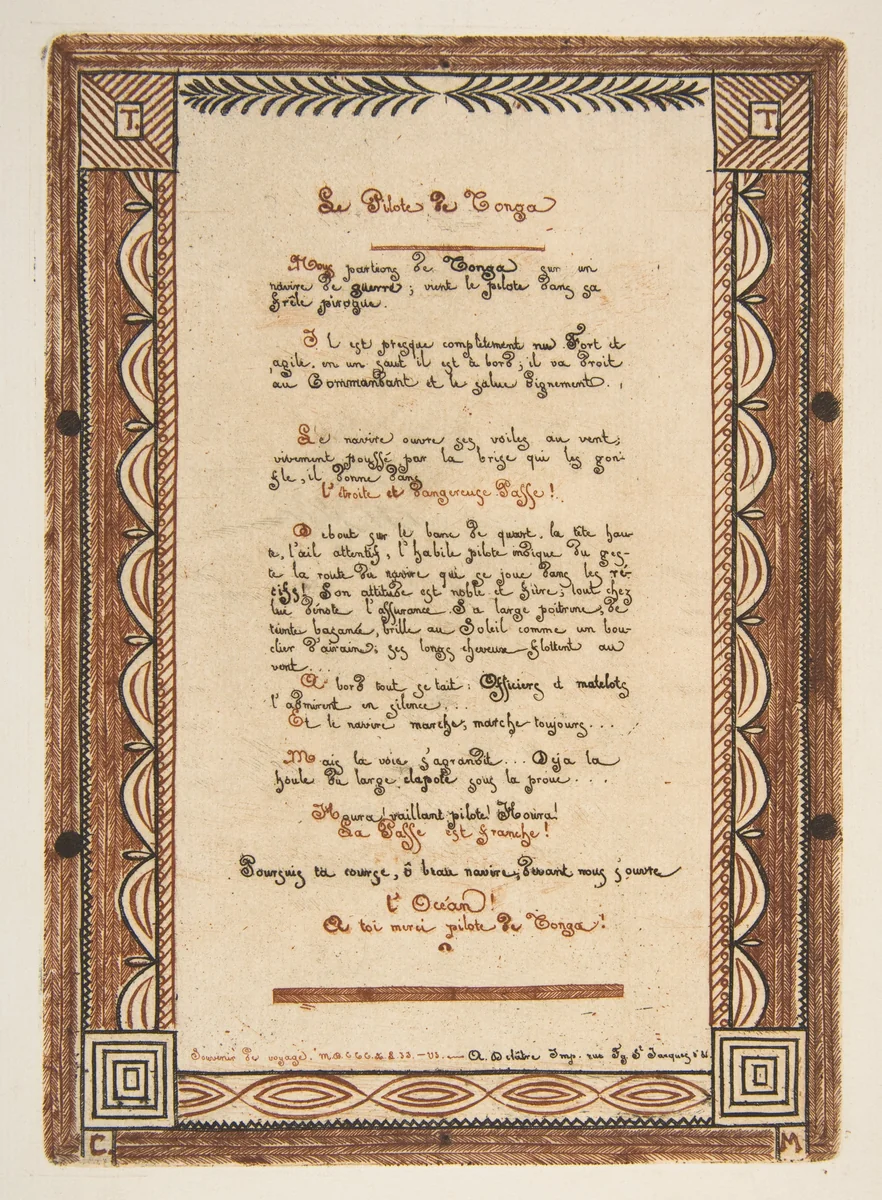 T. T
Le Pilote de Tonga
Nous partions de Tonga sur un
navire de guerre ; vient le pilote dans sa
frêle pirogue.
Il est presque complètement nu Fort et
agile. en un saut il est à bord ; il va droit
au Commandant et le salue dignement.
Le navire ouvre ses voiles au vent ;
vivement poussé par la brise qui les gon-
fle, il donne dans
l'étroite et dangereuse Passe !
Debout sur le banc de quart, la tête hau-
te, l'œil attentif, l'habile pilote indique du ges-
te la route du navire qui se joue dans les ré-
cifs ! Son attitude est noble et fière ; tout chez
lui dénote l'assurance. Sa large poitrine, de
teinte basanée, brille au Soleil comme un bou-
clier d'airain ; ses longs cheveux flottent au
vent...
A bord tout se tait : Officiers et matelots
l'admirent en silence...
Et le navire marche, marche toujours...
Mais la voie s'agrandit... Déja la
houle du large clapote sous la proue...
Houra ! vaillant pilote ! Houra !
La Passe est franche !
Poursuis ta course, ô beau navire, devant nous s'ouvre
l'Océan !
A toi merci pilote de Tonga !
Souvenir de voyage. A. Delâtre Imp. rue Fg. St Jacques
C. M